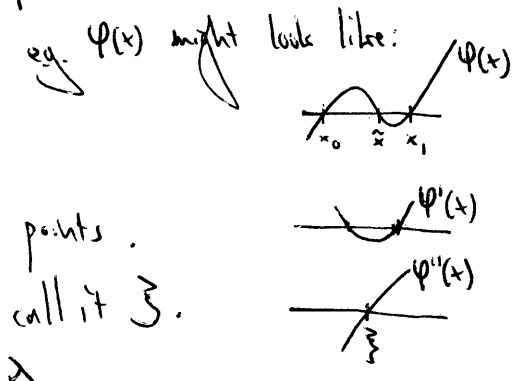 e.g. φ(x) might look like:
φ(x)
x₀ x̃ x₁
φ'(x)
points.
φ''(x)
call it ξ.
ξ